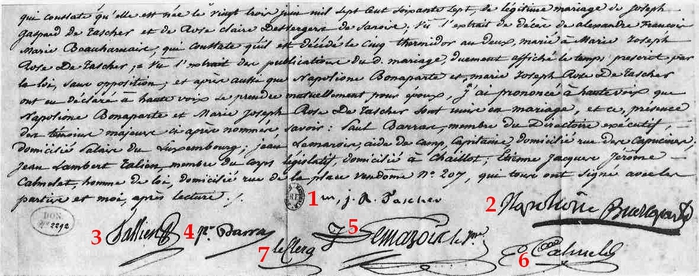 qui constate qu'elle est née le vingt trois juin mil sept cent soixante sept, de légitime mariage de joseph
Gaspard de Tascher et de Rose claire Desvergers de Sanois, Vu l'extrait de décès de alexandre françois
Marie Beauharnais, qui constate qu'il est décédé le cinq thermidor an deux, marié à Marie Joseph
Rose De Tascher; Vu l'extrait des publications du d. mariage, duement affiché le temps prescrit par
la loi, sans opposition; et après aussi que Napolione Bonaparte et marie Joseph Rose De Tascher
ont eu déclaré à haute voix se prendre mutuellement pour époux, j'ai prononcé à haute voix que
Napolione Bonaparte et Marie Joseph Rose De Tascher sont unis en mariage, et ce, en présence
des témoins majeurs ci après nommés, savoir: Paul Barras, membre du Directoire exécutif,
domicilié palais du Luxembourg; jean Lemarois, aide de camp, capitaine, domicilié rue des Capucines
jean Lambert Tallien, membre du corps législatif, domicilié à Chaillot; Etienne Jacques Jérome
Calmelet, homme de loi, domicilié rue de la place vendome N° 207, qui tous ont signé avec les
parties et moi, après lecture.
1 m. j. R. Tascher
2 Napolione Buonaparte
3 Tallien
4 P. Barras
5 J. Lemarois le jne
6 Calmelet
7 leclerq
DON
N° 2292